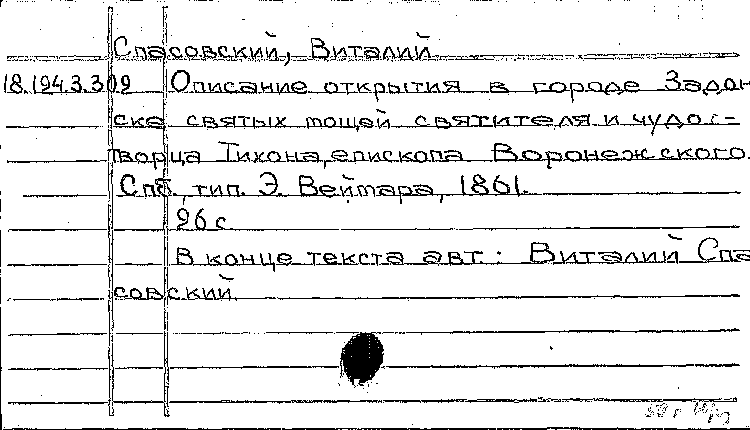 Спасовский, Виталий
18.194.3.309 Описание открытия в городе Задон
ске святых мощей святителя и чудо-
творца Тихона, епископа Воронежского.
Спб., тип. Э. Веймара, 1861.
26 с
В конце текста авт.: Виталий Спа
совский.